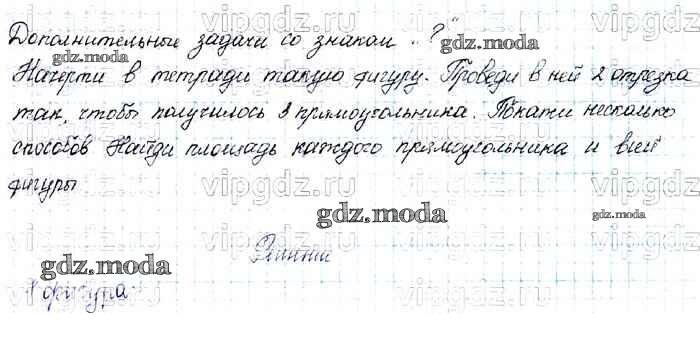 Дополнительные задачи со знаком „?“
gdz.moda
gdz.moda
Начерти в тетради такую фигуру. Проведи в ней 2 отрезка
так, чтобы получилось 3 прямоугольника. Покажи несколько
способов Найди площадь каждого прямоугольника и всей
фигуры
vipgdz.ru
gdz.moda
gdz.moda
gdz.moda
1 фигура: